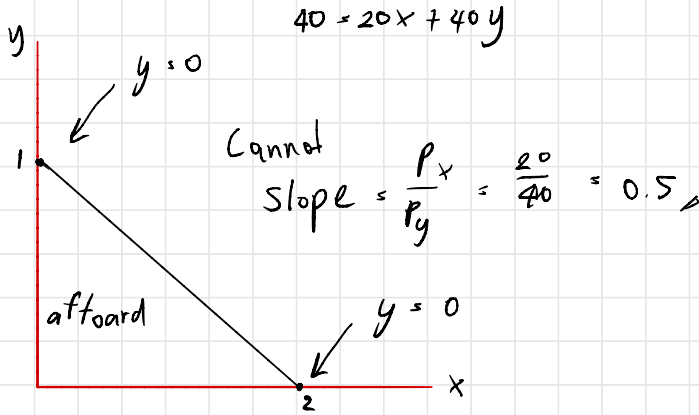 40 = 20x + 40y
y
y = 0
1
Cannot
slope = Px/Py = 20/40 = 0.5
affoard
y = 0
x
2